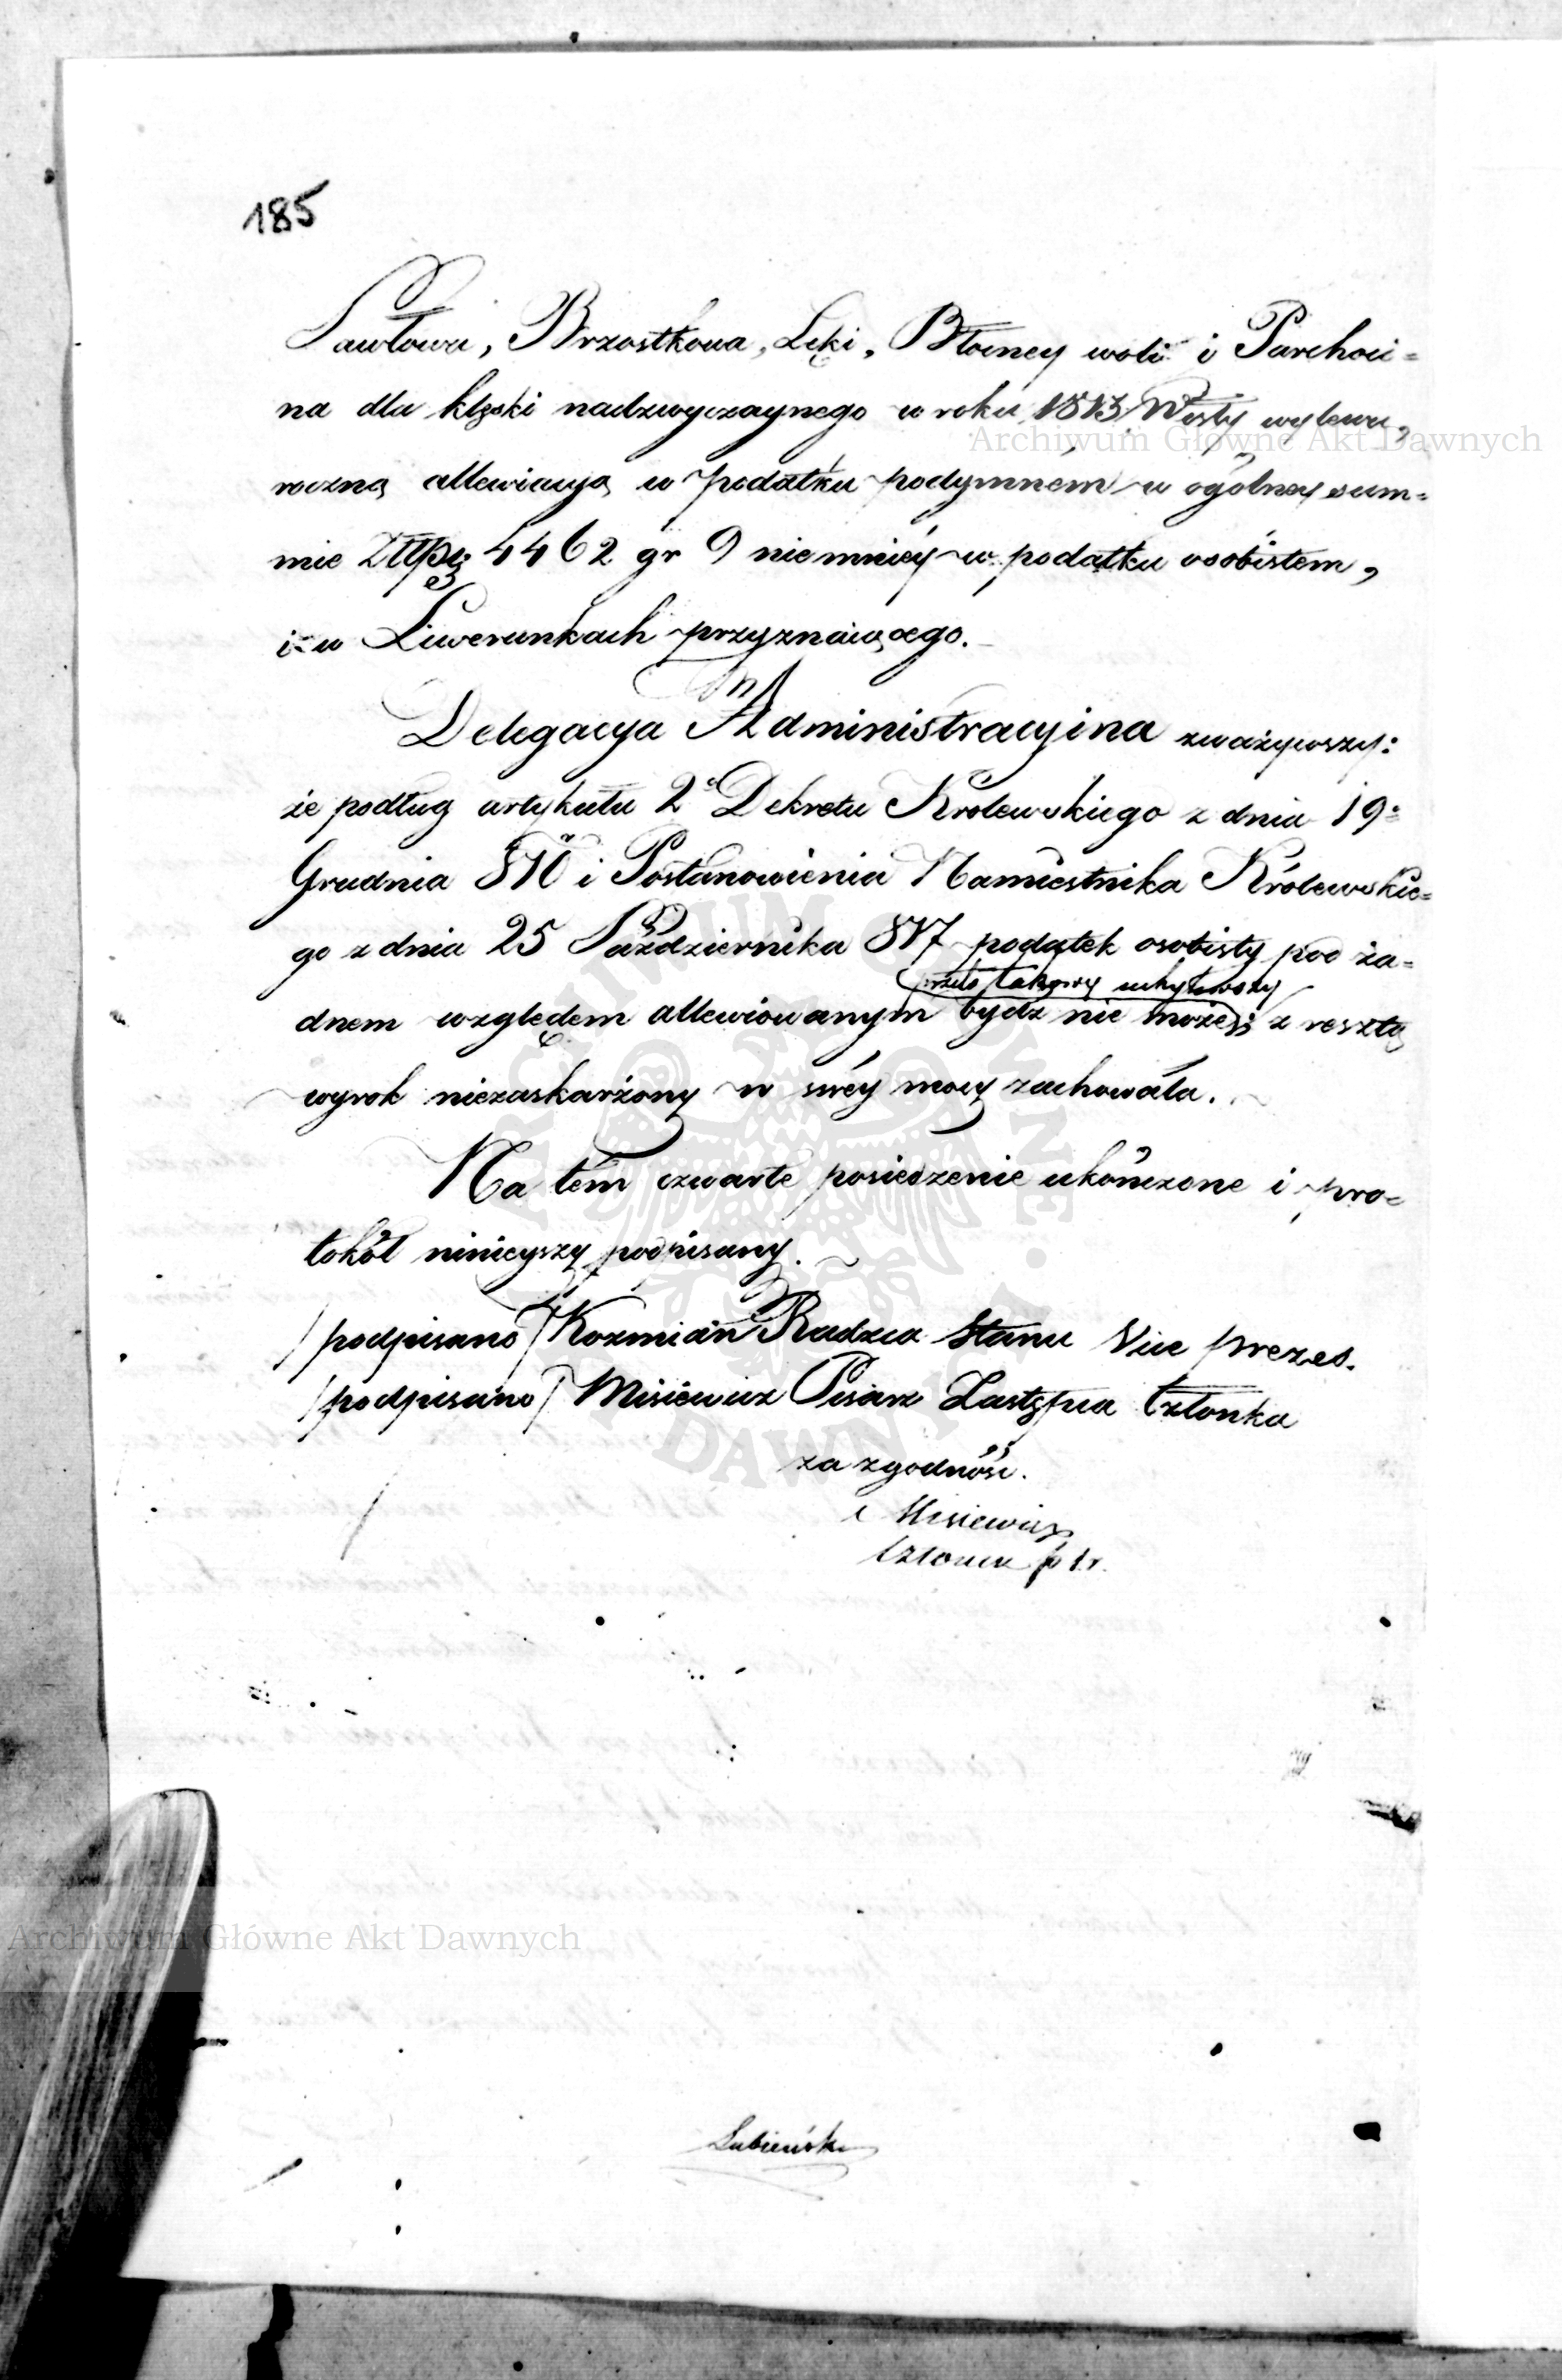 185
Pawłowa, Brzostkowa, Łęki, Błotney woli i Parchoci=
na dla klęski nadzwyczaynego w roku 1813 Wisły wylewu,
roczną allewiacyą w podatku podymném w ogólney sum=
mie Złłpɀ 4462 gr 9 niemniéy w podatku osobistem,
i w Liwerunkach przyznaiącego.
Delegacya Administracyina zważywszy:
że podług artykułu 2º Dekretu Królewskiego z dnia 19=
Grudnia 810 i Postanowienia Namiestnika Królewskie=
go z dnia 25 Października 817 podatek osobisty pod ża=
przeto takowy uchyliwszy
dnem względem allewiowanym bydź nie może; z resztą
wyrok niezaskarżony w swéy mocy zachowała.
Na tém czwarte posiedzenie ukończone i pro=
tokół ninieyszy podpisany.
/podpisano/ Kozmian Radzca Stanu Vice prezes.
/podpisano/ Misiewicz Pisarz Zastępca Członka
za zgodność.
Misiewicz
Lubieński
Archiwum Główne Akt Dawnych
Archiwum Główne Akt Dawnych
ARCHIWUM GŁÓWNE AKT DAWNYCH